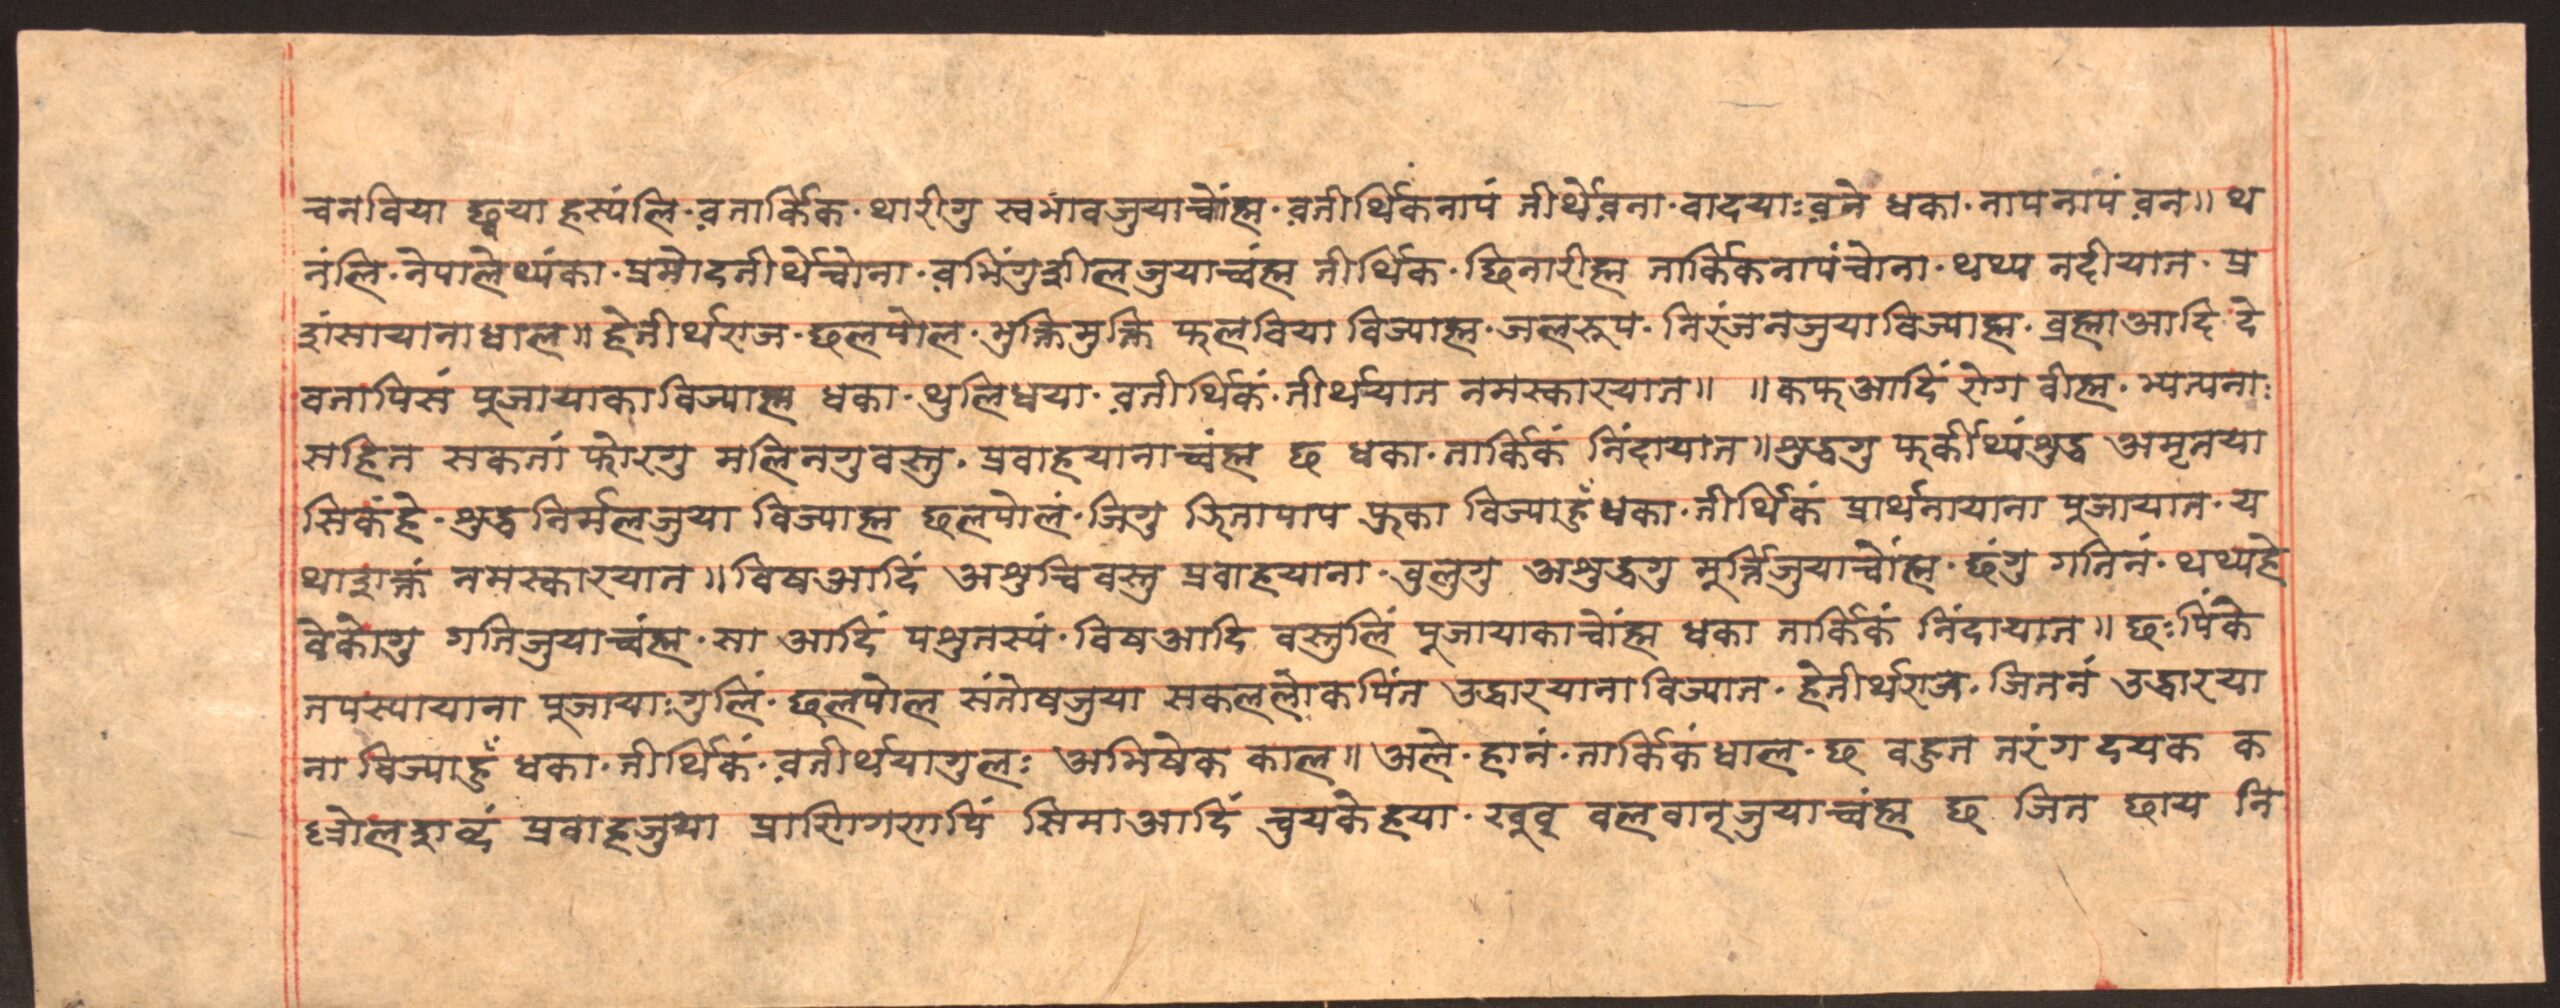 चनविया छ्वया हस्यंलि·व़तार्किक·थारीगु स्वभावजुयाच्वोंह्म·व़तीर्थिकनापं तीर्थेव़ना·वादयाःव़ने धका·नापनापं व़न॥थ
नंलि·नेपालेथ्यंका·प्रमोदतीर्थेच्वोना·व़भिंगुशीलजुयाच्वंह्म तीर्थिक·छिनारीह्म तार्किकनापंचोना·थथ्य नदीयात·प्र
शंसायानाधाल॥हेतीर्थराज·छलपोल·भुक्तिमुक्ति फलविया विज्याह्म·जलरूप·निरंजनजुयाविज्याह्म·ब्रह्माआदि दे
वतापिसं पूजायाकाविज्याह्म धका·थुलिधया·व़तीर्थिकं·तीर्थयात नमस्कारयात॥ ॥कफआदिं रोग वीह्म·भ्यत्पनाः
सहित सकतां फोरगु मलिनगुवस्तु·प्रवाहयानाच्वंह्म छ धका·तार्किकं निंदायात॥शुद्धगु फर्कीथ्यंशुद्ध अमृतया
सिकंहे·शुद्धनिर्मलजुया विज्याह्म छलपोलं·जिगु त्रितापाप फुका विज्याहुँधका·तीर्थिकं प्रार्थनायाना पूजायात·य
थाशक्तं नमस्कारयात॥विषआदिं अशुचिवस्तु प्रवाहयाना·वुलुगु अशुद्धगु मूर्त्तिजुयाच्वोंह्म·छंगु गतिनं·थथ्यहे
वेकोगु गतिजुयाच्वंह्म·सा आदिं पशुतस्यं·विषआदि वस्तुलिं पूजायाकाच्वोंह्म धका तार्किकं निंदायात॥छःपिंके
तपस्यायाना पूजायाःगुलिं·छलपोल संतोषजुया सकललोकपिंत उद्धारयानाविज्यात·हेतीर्थराज·जितनं उद्धारया
ना विज्याहुँ धका·तीर्थिकं·व़तीर्थयागुलः अभिषेक काल॥अले·हानं·तार्किकंधाल·छ वहुत तरंग दयक क
ल्लोलशब्दं प्रवाहजुया प्राणिगणपिं सिमाआदिं चुयकेहया·खूव् वलवान्जुयाच्वंह्म छ जित छाय नि